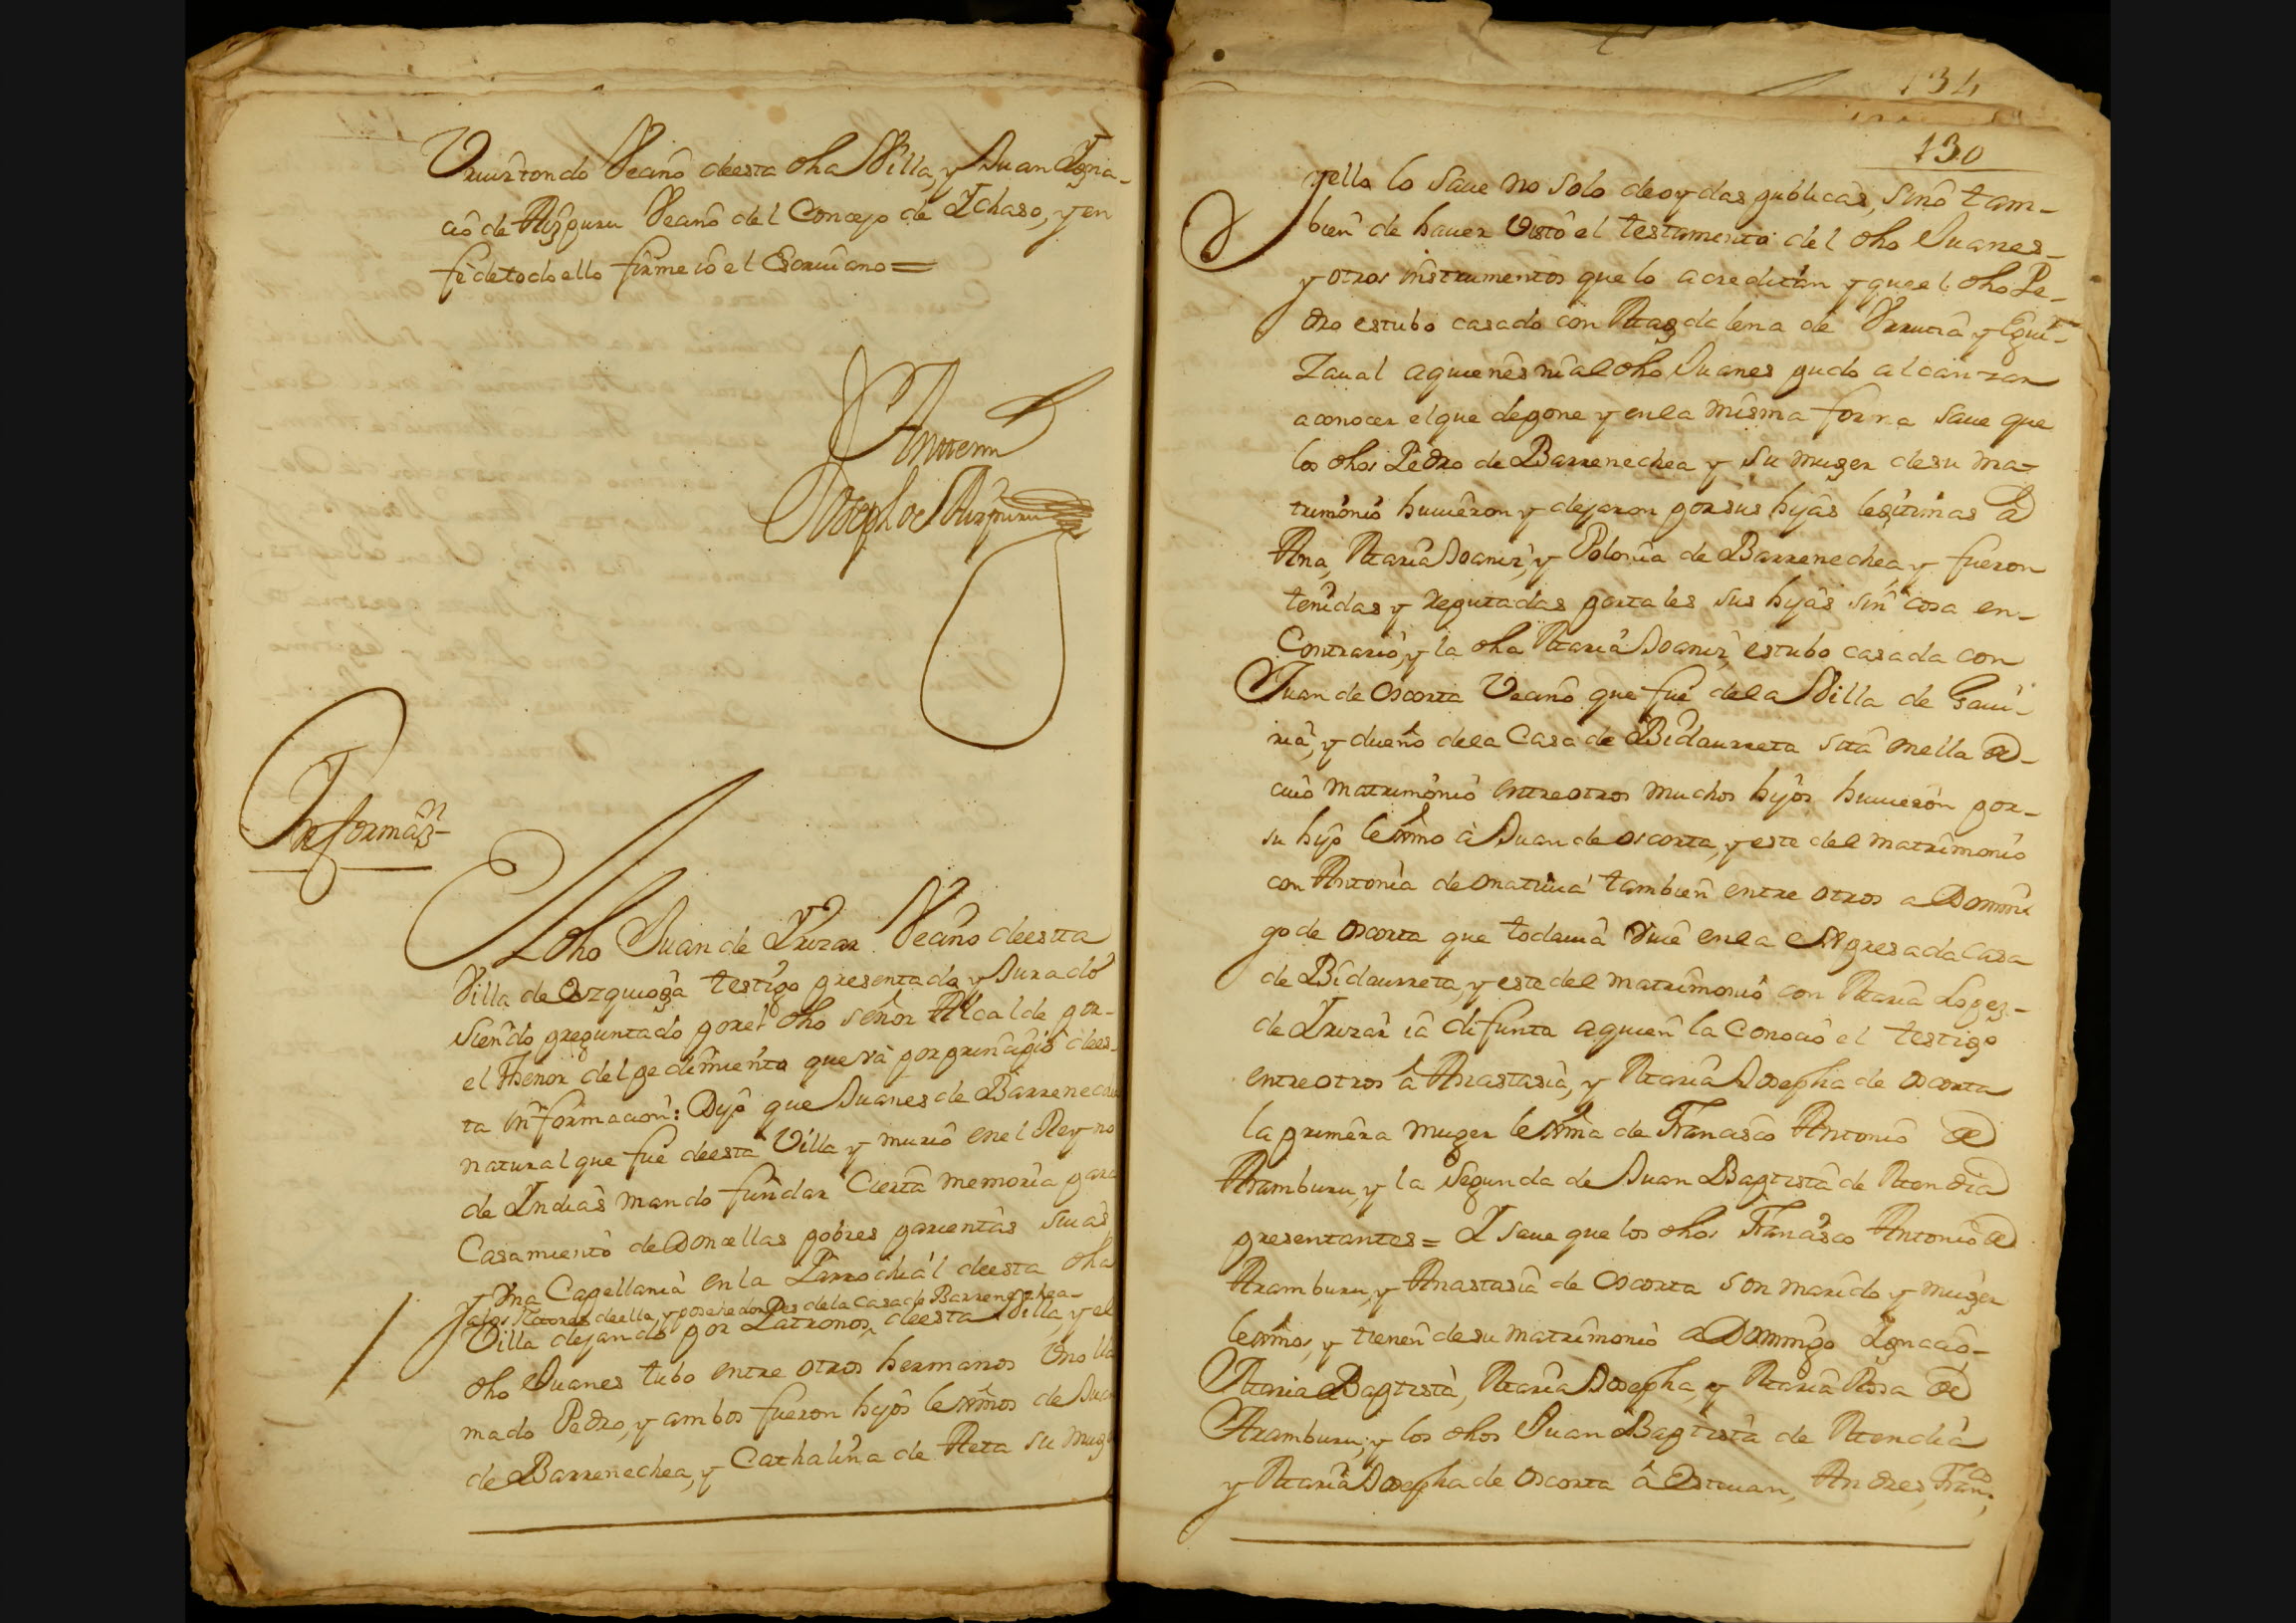 Vrruztondo Vecino deesta dha Villa, y Juan Igna-
cio de Aizpuru Vecino del Concejo de Ichaso, y en
feè de todo ello firme io el Escriuano =
Antemi
Joseph de Aizpuru
Informaz.n
El dho Juan de Irizar Vecino deesta
Villa de Ezquioga testigo presentado y Jurado
Siendo preguntado por el dho señor Alcalde por
el Thenor del pedimiento que và por principio dees-
ta información: Dijo que Juanes de Barrenechea
natural que fuè deesta Villa y muriò en el Reyno
de Indias mando fundar Cierta memoria para
Casamiento de Doncellas pobres parientas suias
y Vna Capellania en la Parrochial deesta dha
a los Rectores deella, y posehedores de la Casa de Barrenechea
Villa dejando por Patronos, deesta Villa, y el
dho Juanes tubo entre otros hermanos Vno lla
mado Pedro, y ambos fueron hijos lexmos de Juan
de Barrenechea, y Cathalina de Reta su muger
134
130
yello lo saue no solo de oydas publicas, sino tam-
bien de hauer visto el testamento del dho Juanes
y otros instrumentos que lo acreditan y que el dho Pe-
dro estubo casado con Magdalena de Vrrutia y Egui-
zaual aquienes ni al dho Juanes pudo alcanzar
aconocer el que depone y en la misma forma saue que
los dhos Pedro de Barrenechea y su muger de su ma-
trimonio huuieron y dejaron por sus hijas legitimas a
Ana, Maria Joaniz, y Polonia de Barrenechea, y fueron
tenidas y reputadas por tales sus hijas sin cosa en
Contrario, y la dha Maria Joaniz, estubo casada con
Juan de Oscorta Vecino que fuè de la Villa de Gaui-
ria, y dueño de la Casa de Bidaurreta sita en ella de
cuio matrimonio entre otros muchos hijos huuieron por
su hijo lexmo à Juan de Oscorta, y este del matrimonio
con Antonia de Onativia tambien entre otros a Domin
go de Oscorta que todauia viue en la expresada Casa
de Bidaurreta, y este del matrimonio con Maria Lopez
de Irizar ià difunta aquien la Conociò el testigo
entre otros à Anastasia, y Maria Josepha de Oscorta
la primera muger lexma de Francisco Antonio de
Aramburu, y la segunda de Juan Baptista de Mendia
presentantes = I saue que los dhos Francisco Antonio de
Aramburu, y Anastasia de Oscorta son marido y muger
lexmos, y tienen de su matrimonio a Domingo Ignacio
Maria Baptista, Maria Josepha, y Maria Rosa de
Aramburu, y los dhos Juan Baptista de Mendia
y Maria Josepha de Oscorta à Esteuan, Andres, Fran.co